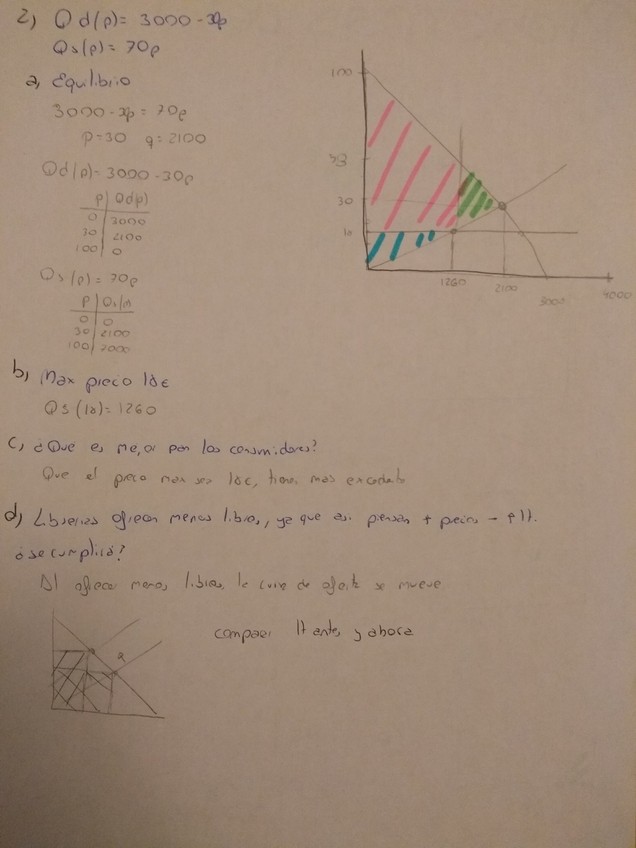 2) Qd(p)= 3000 - 30p
Qs(p)= 70p
a) Equilibrio
3000 - 30p = 70p
p=30 q=2100
Qd(p)= 3000 - 30p
p | Qd(p)
0 | 3000
30 | 2100
100 | 0
Qs(p)= 70p
p | Qs(p)
0 | 0
30 | 2100
100 | 7000
100
58
30
18
1260
2100
3000
4000
b) Max precio 18€
QS(18)=1260
c) ¿Que es mejor por los consumidores?
Que el precio max sea 18€, tienen mas excedente
d) Librerias ofrecen menos libros, ya que asi piensan + precio →
¿se cumplirá?
Al ofrecer menos libros, la curva de oferta se mueve
comparar antes y ahora